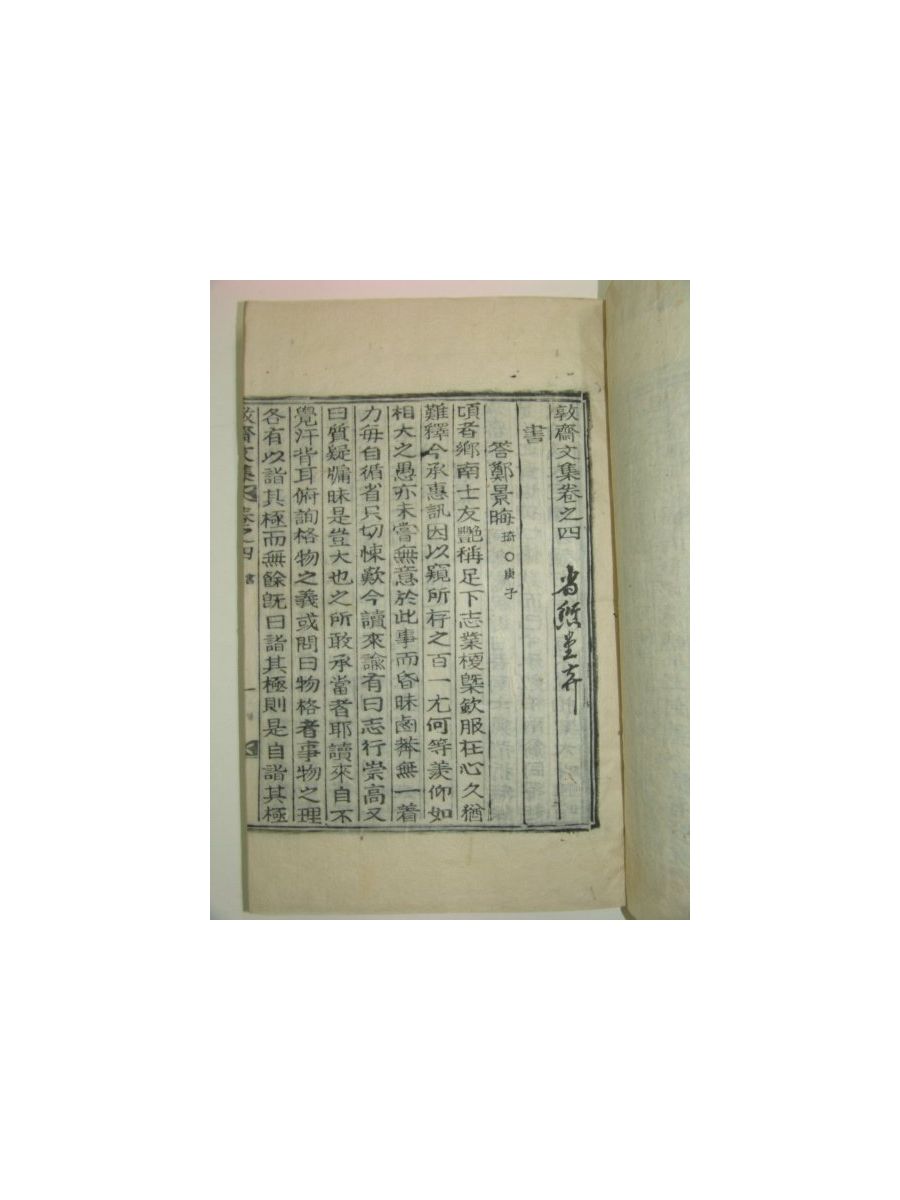 敦齋文集卷之四
書
答鄭景晦 琦○庚子
頃者鄉南士友艶稱足下志業梗槩欽服在心久猶
難釋今承惠訊因以窺所存之百一尤何等羨仰如
相大之愚亦未嘗無意於此事而昏昧鹵莽無一着
力每自循省只切悚歎今讀來諭有曰志行崇高又
曰質疑牖昧是豈大也之所敢承當者耶讀來自不
覺汗背耳俯詢格物之義或問曰物格者事物之理
各有以詣其極而無餘旣曰詣其極則是自詣其極
敦齋文集 卷之四 書 一